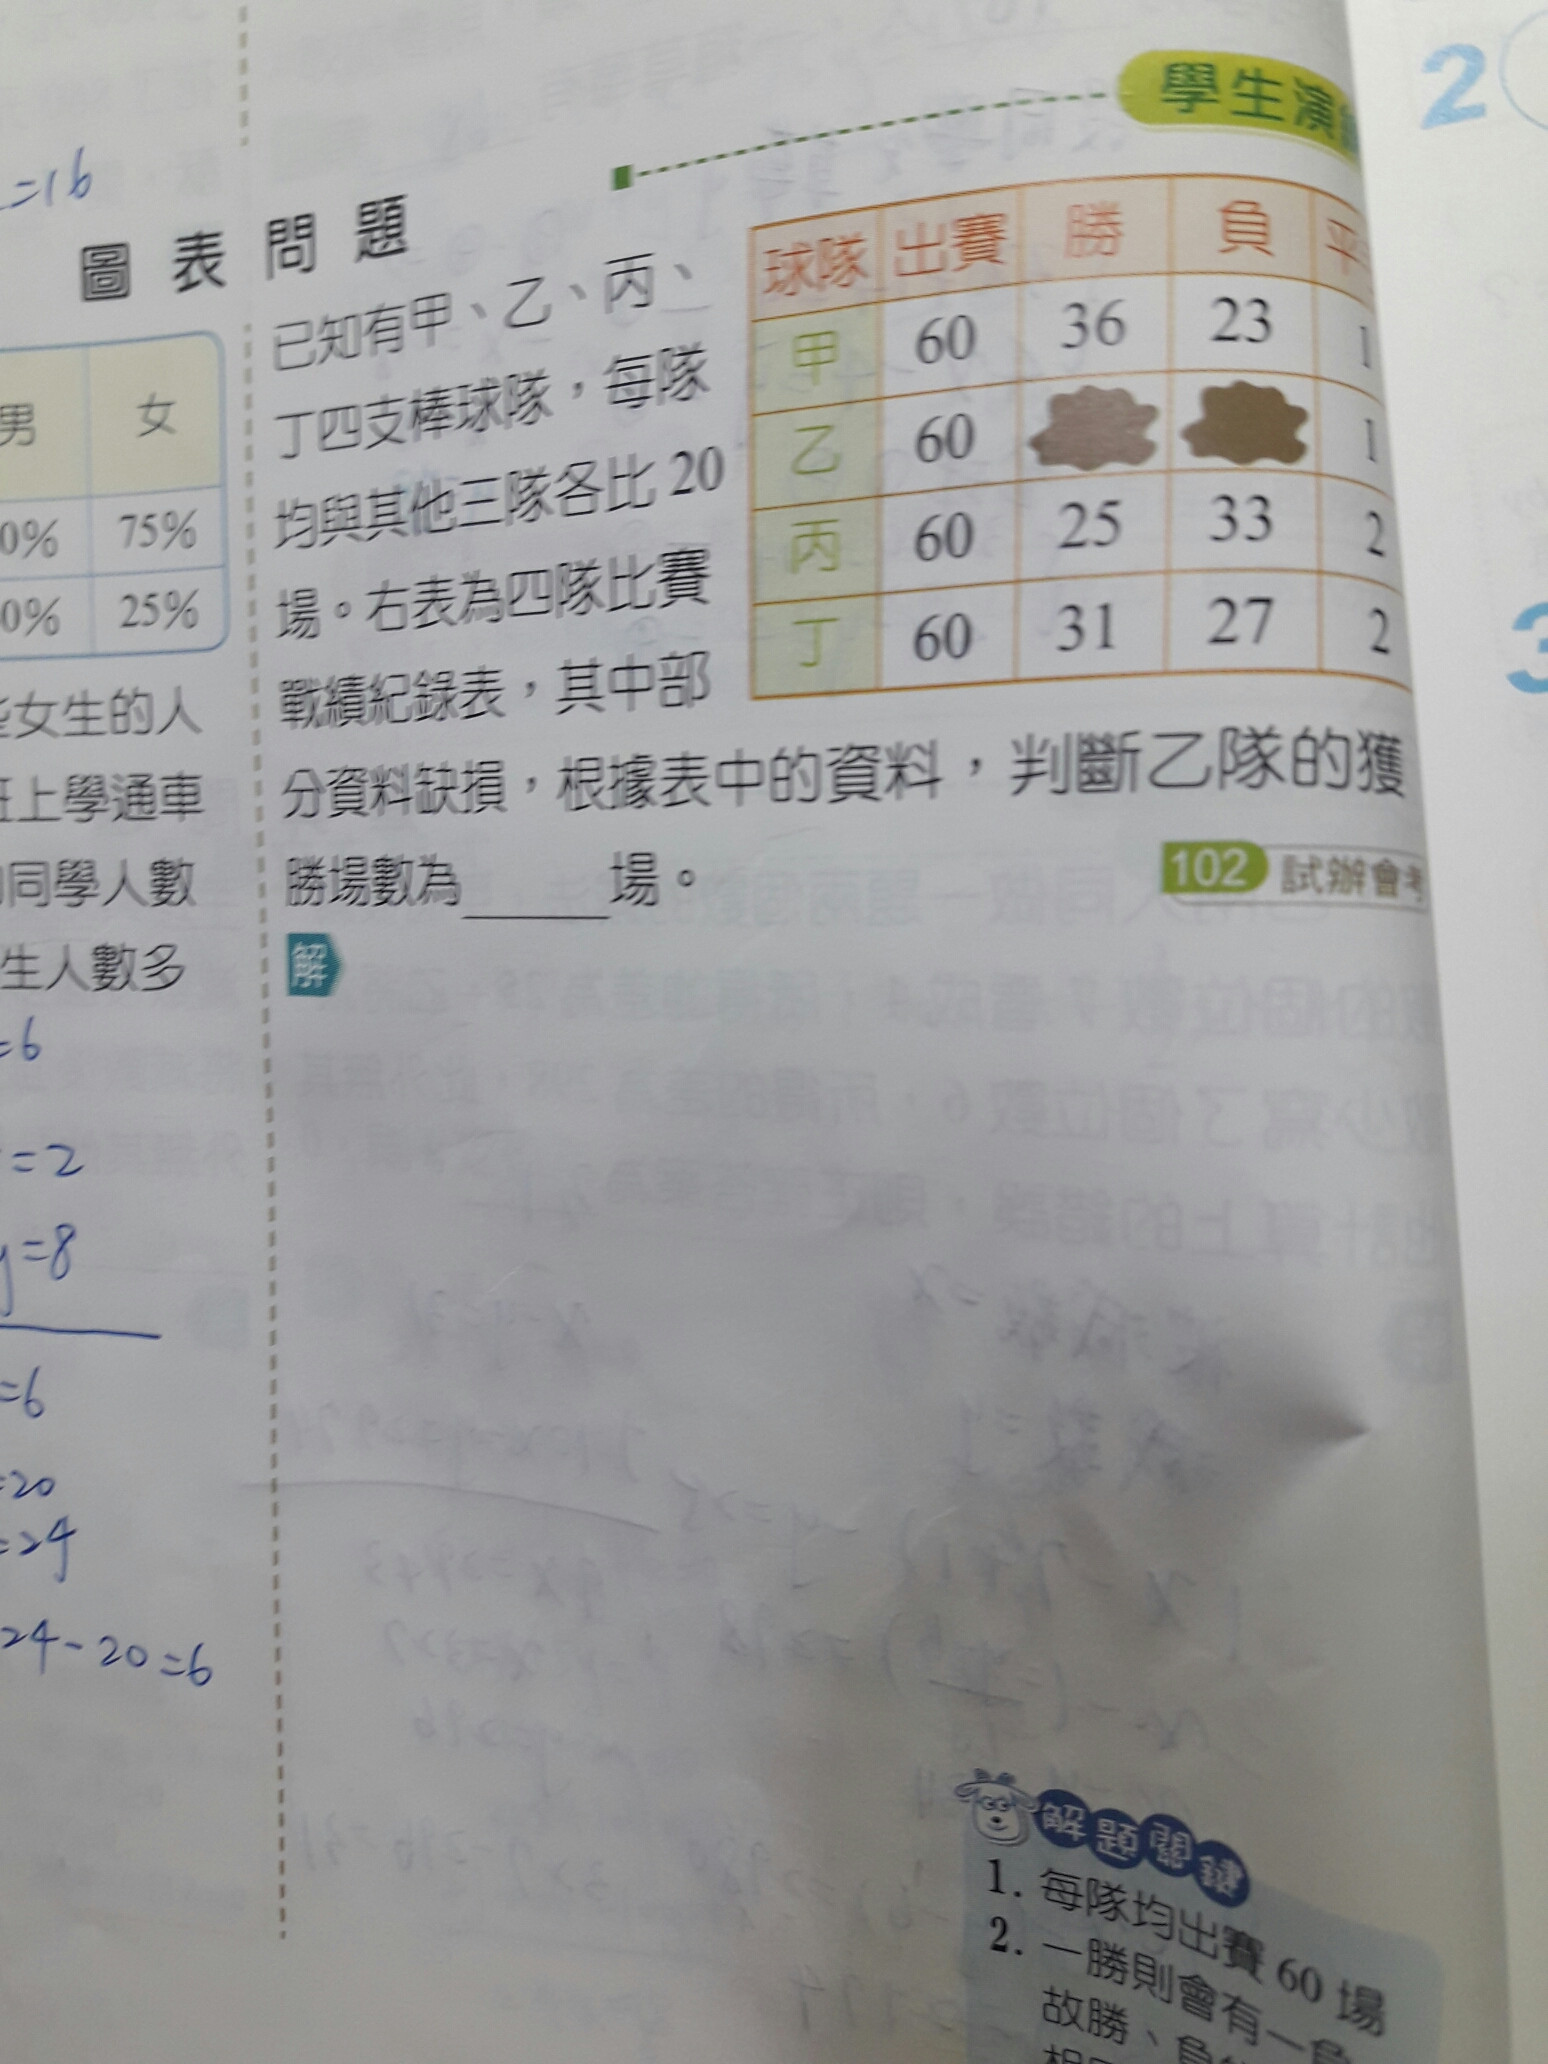 2
=16
圖表問題
男 女
0% 75%
0% 25%
女生的人
上學通車
同學人數
生人數多
=6
=2
y=8
=6
=20
=24
24-20=6
學生演
已知有甲、乙、丙、
丁四支棒球隊，每隊
均與其他三隊各比 20
場。右表為四隊比賽
戰績紀錄表，其中部
分資料缺損，根據表中的資料，判斷乙隊的獲
勝場數為______場。
102 試辦會考
球隊 出賽 勝 負 平
甲 60 36 23 1
乙 60 1
丙 60 25 33 2
丁 60 31 27 2
解
解題關鍵
1. 每隊均出賽 60 場
2. 一勝則會有一負
故勝、負
3